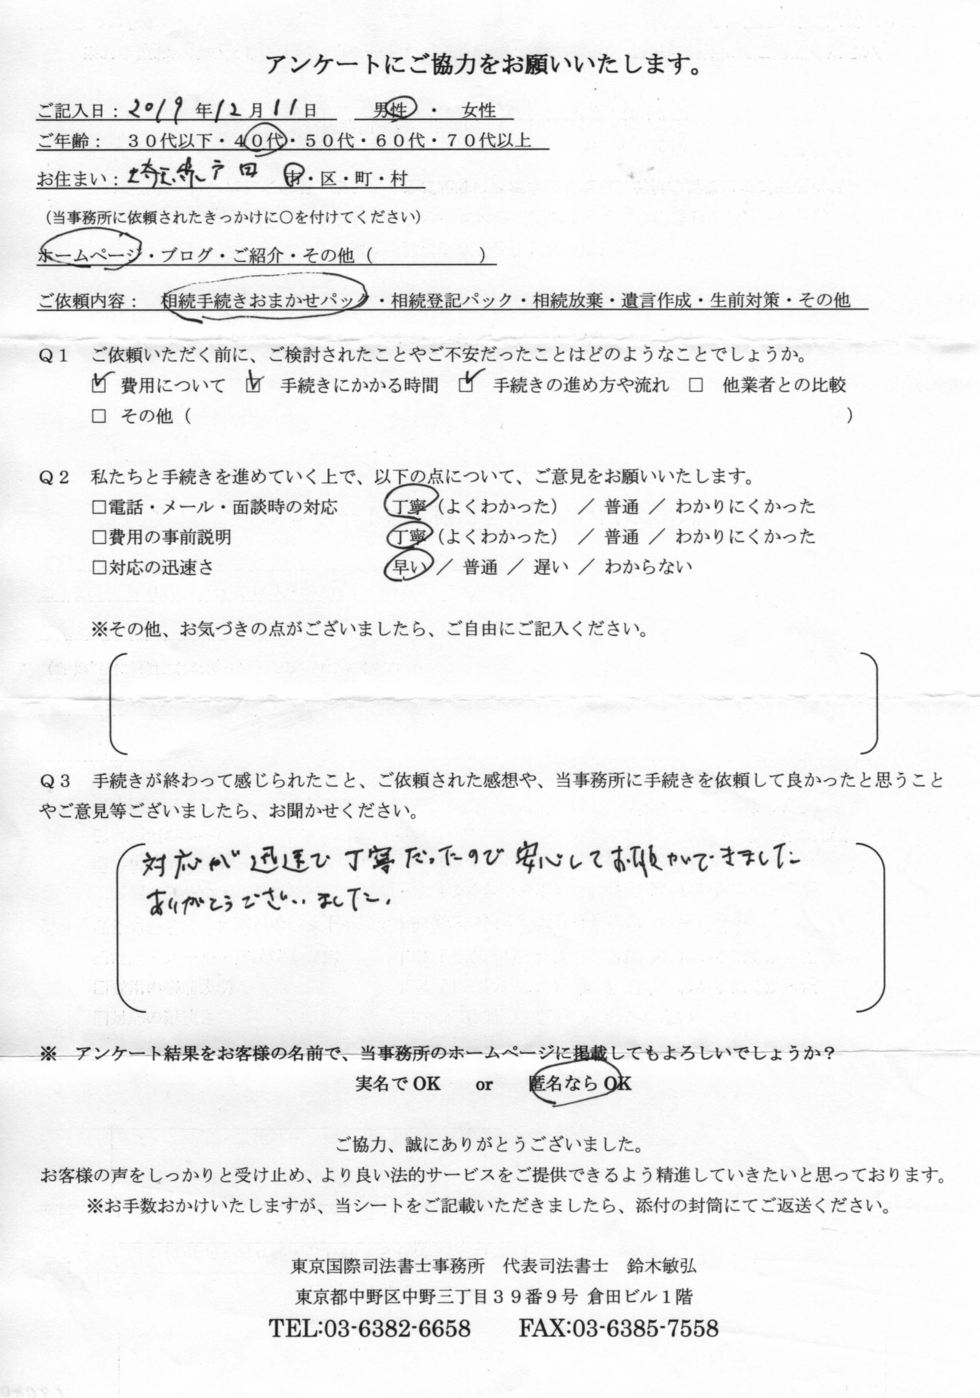 アンケートにご協力をお願いいたします。
ご記入日：2019年12月11日　男性 ・ 女性
ご年齢：　３０代以下・４０代・５０代・６０代・７０代以上
お住まい：埼玉県戸田 市・区・町・村
（当事務所に依頼されたきっかけに〇を付けてください）
ホームページ・ブログ・ご紹介・その他（　　　　　　）
ご依頼内容：　相続手続きおまかせパック・相続登記パック・相続放棄・遺言作成・生前対策・その他
Ｑ１　ご依頼いただく前に、ご検討されたことやご不安だったことはどのようなことでしょうか。
☑ 費用について　☑ 手続きにかかる時間　☑ 手続きの進め方や流れ　□ 他業者との比較
□ その他（　　　　　　　　　　）
Ｑ２　私たちと手続きを進めていく上で、以下の点について、ご意見をお願いいたします。
□電話・メール・面談時の対応　丁寧（よくわかった） ／ 普通 ／ わかりにくかった
□費用の事前説明　丁寧（よくわかった） ／ 普通 ／ わかりにくかった
□対応の迅速さ　早い ／ 普通 ／ 遅い ／ わからない
※その他、お気づきの点がございましたら、ご自由にご記入ください。
Ｑ３　手続きが終わって感じられたこと、ご依頼された感想や、当事務所に手続きを依頼して良かったと思うこと
やご意見等ございましたら、お聞かせください。
対応が迅速で丁寧だったので安心してお願いができました
ありがとうございました。
※　アンケート結果をお客様の名前で、当事務所のホームページに掲載してもよろしいでしょうか？
実名でOK　or　匿名ならOK
ご協力、誠にありがとうございました。
お客様の声をしっかりと受け止め、より良い法的サービスをご提供できるよう精進していきたいと思っております。
※お手数おかけいたしますが、当シートをご記載いただきましたら、添付の封筒にてご返送ください。
東京国際司法書士事務所　代表司法書士　鈴木敏弘
東京都中野区中野三丁目３９番９号 倉田ビル１階
TEL:03-6382-6658　FAX:03-6385-7558